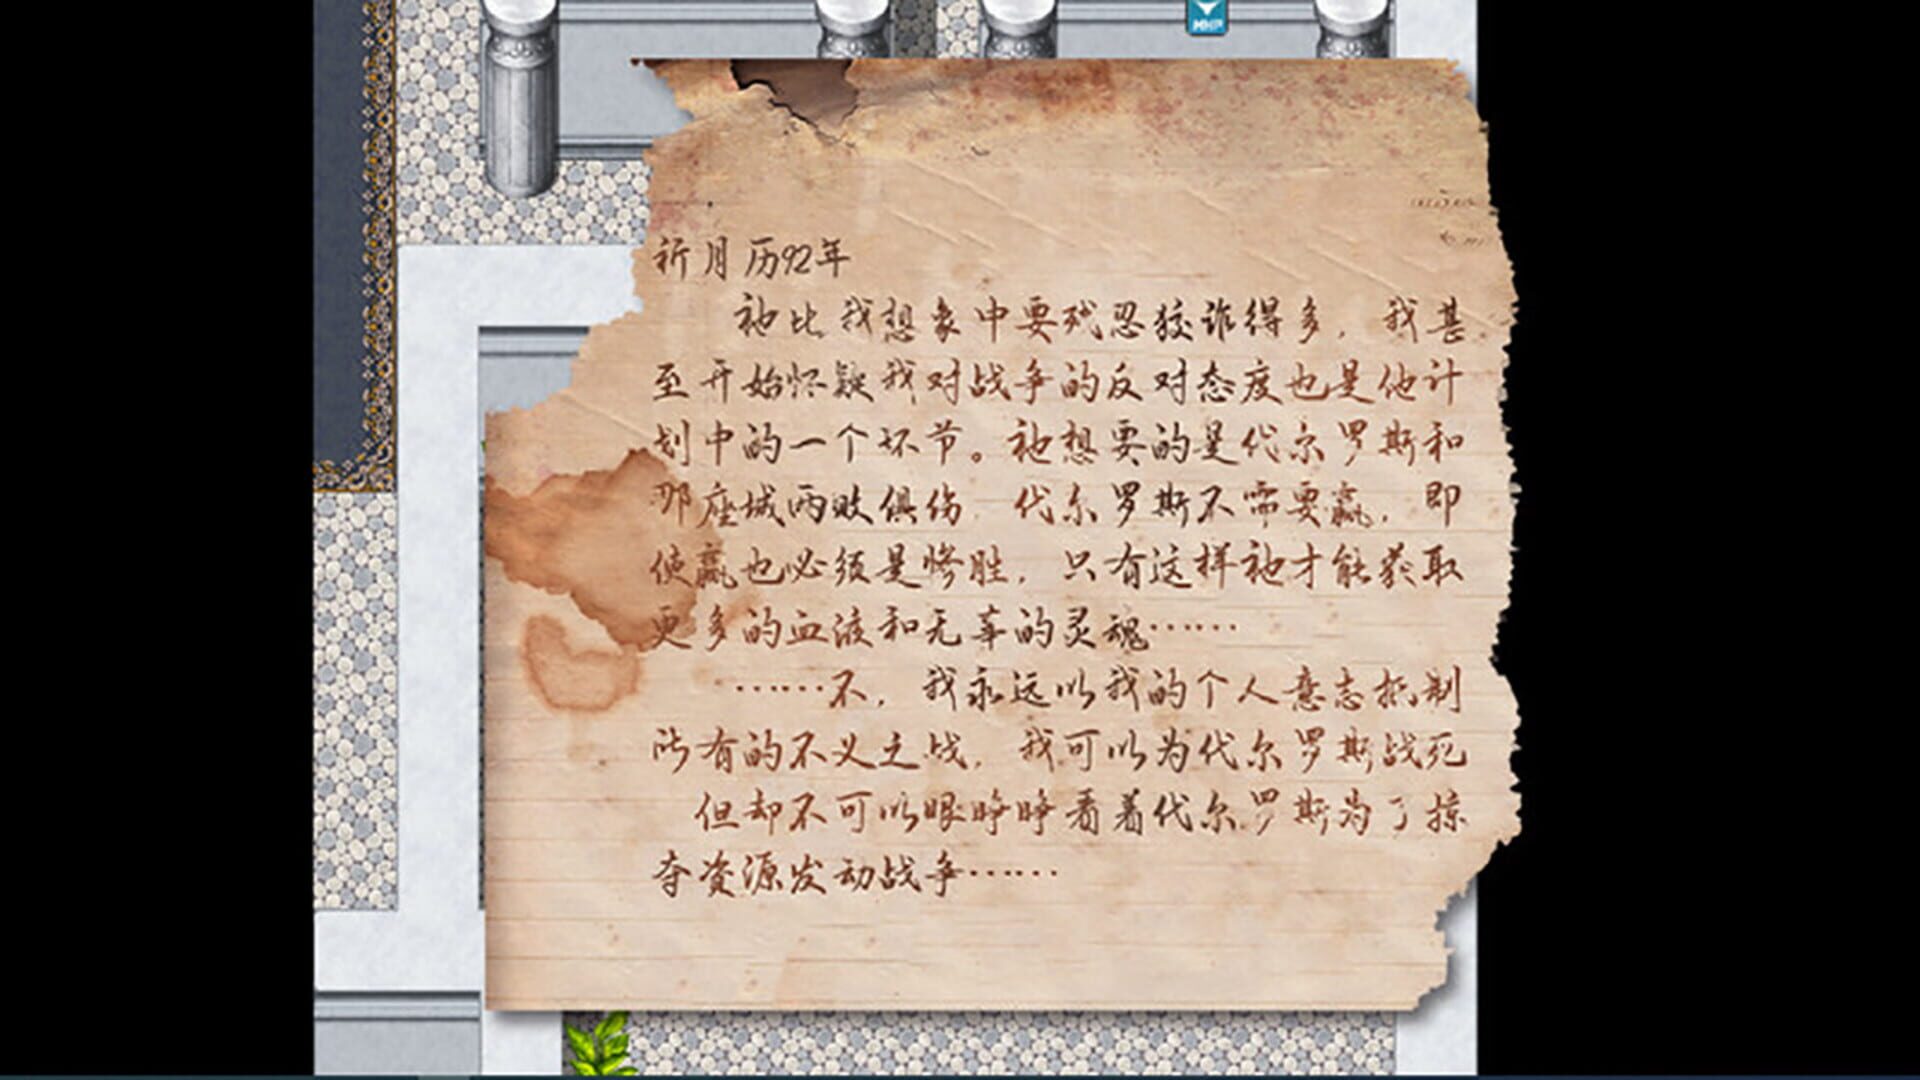 祈月历92年
祂比我想象中要残忍狡诈得多，我甚
至开始怀疑我对战争的反对态度也是他计
划中的一个环节。祂想要的是代尔罗斯和
那座城两败俱伤，代尔罗斯不需要赢，即
使赢也必须是惨胜，只有这样祂才能获取
更多的血液和无辜的灵魂……
……不，我永远以我的个人意志抵制
所有的不义之战，我可以为代尔罗斯战死
但却不可以眼睁睁看着代尔罗斯为了掠
夺资源发动战争……